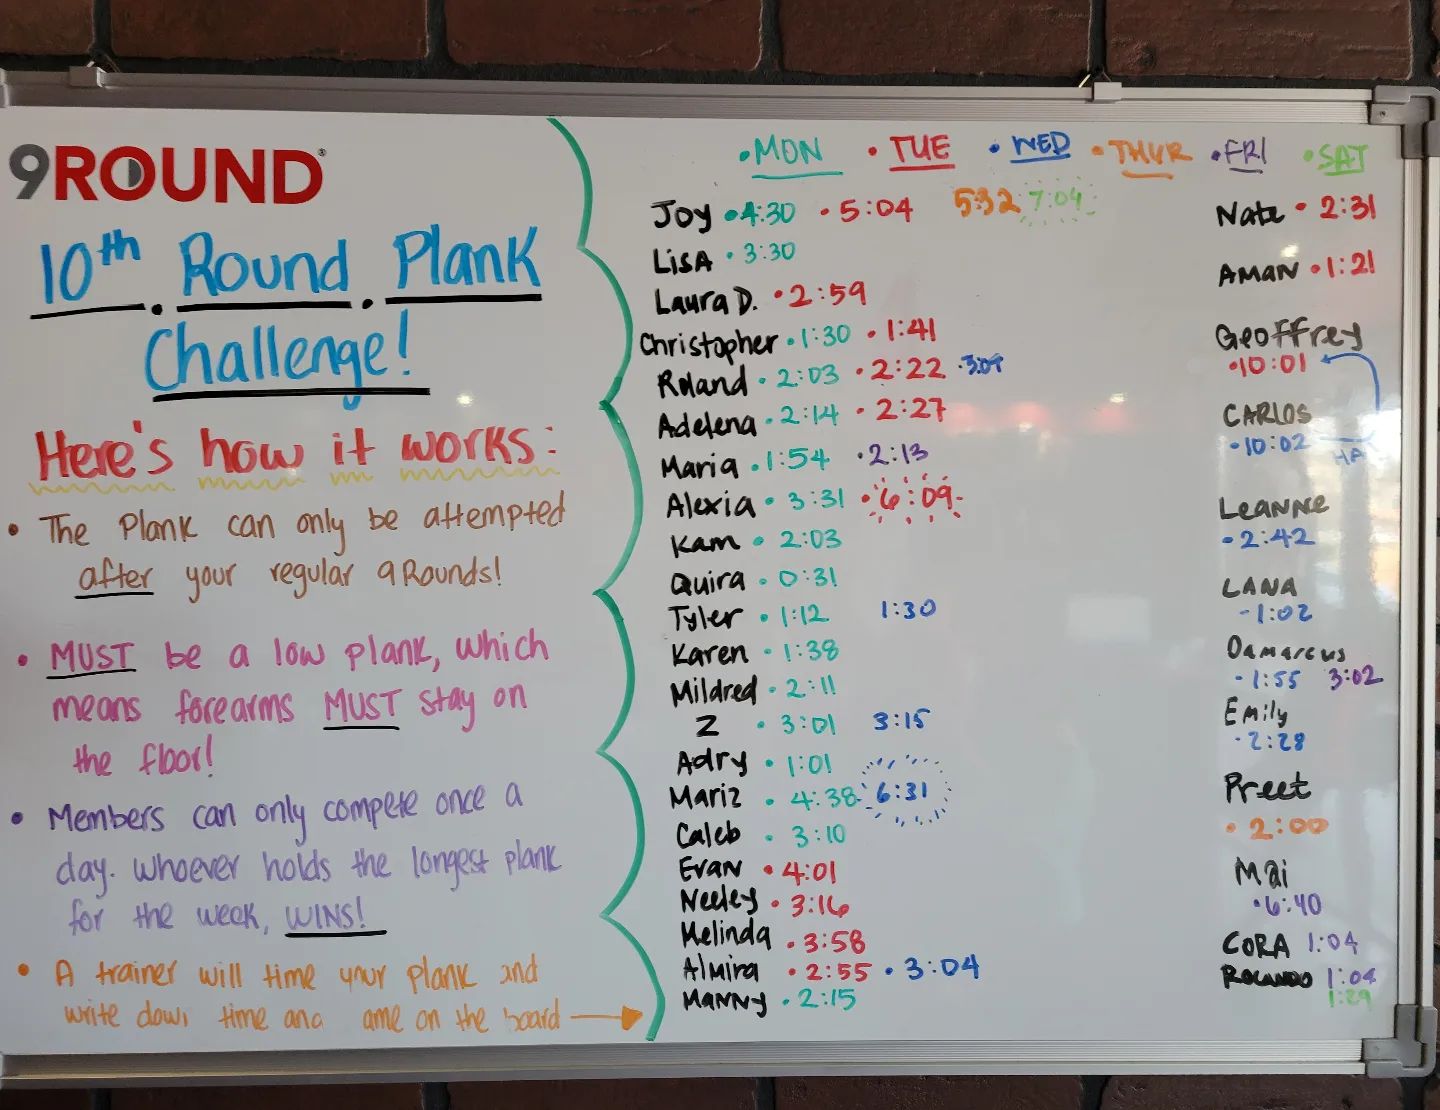 9ROUND®
10th Round Plank
Challenge!
Here's how it works:
• The Plank can only be attempted
after your regular 9Rounds!
• MUST be a low plank, which
means forearms MUST stay on
the floor!
• Members can only compete once a
day. Whoever holds the longest plank
for the week, WINS!
• A trainer will time your plank and
write down time and ame on the board
• MON • TUE • WED • THUR • FRI • SAT
Joy • 4:30 • 5:04 5:32 7:04
LisA • 3:30
Laura D. • 2:59
Christopher • 1:30 • 1:41
Roland • 2:03 • 2:22
Adelena • 2:14 • 2:27
Maria • 1:54 • 2:13
Alexia • 3:31 • 6:09
Kam • 2:03
Quira • 0:31
Tyler • 1:12 1:30
Karen • 1:38
Mildred • 2:11
Z • 3:01 3:15
Adry • 1:01
Mariz • 4:38 6:31
Caleb • 3:10
Evan • 4:01
Neeley • 3:16
Melinda • 3:58
Almira • 2:55 • 3:04
MANNY • 2:15
Nate • 2:31
AMAN • 1:21
Geoffrey
• 10:01
CARLOS
• 10:02 HA
LeANNe
• 2:42
LANA
- 1:02
Damarcus
• 1:55 3:02
Emily
• 2:28
Preet
• 2:00
Mai
• 6:40
CORA 1:04
ROLANDO 1:04
1:29